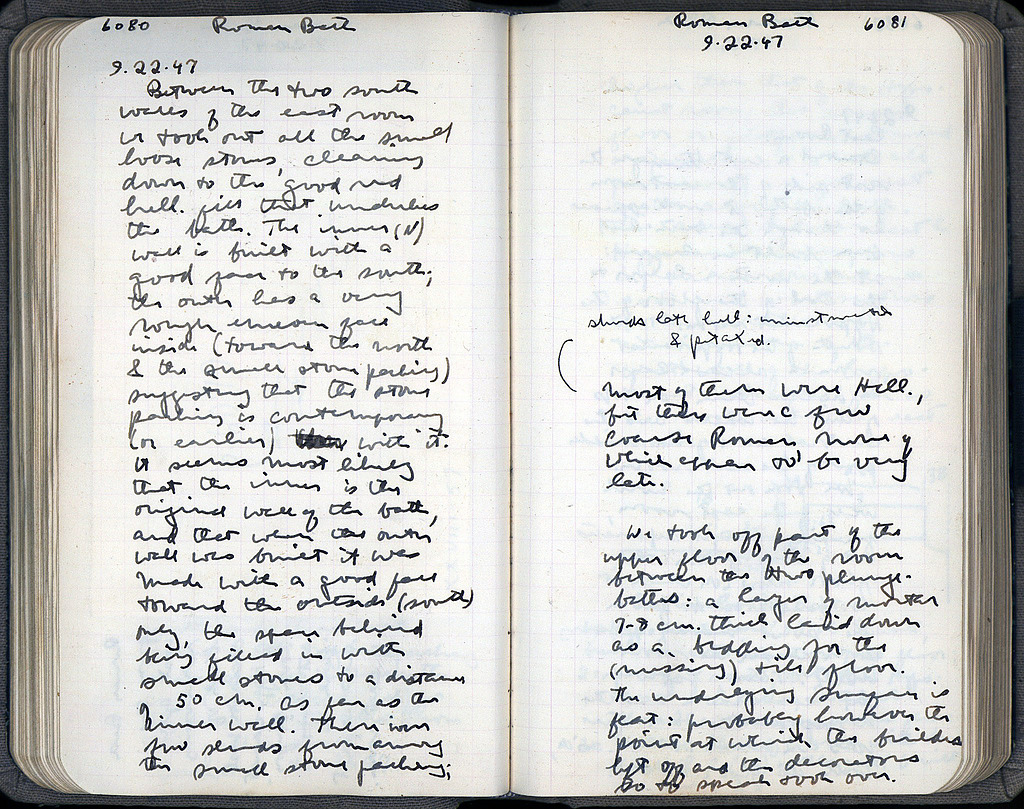 6080 Roman Bath
9.22.47
Between the two south
walls of the east room
we took out all the small
loose stones, cleaning
down to the good red
hell. fill that underlies
the bath. The inner (N)
wall is built with a
good face to the south;
the outer has a very
rough uneven face
inside (toward the north
& the small stone packing)
suggesting that the stone
packing is contemporary
(or earlier) with it.
It seems most likely
that the inner is the
original wall of the bath,
and that when the outer
wall was built it was
made with a good face
toward the outside (south)
only, the space behind
being filled in with
small stones to a distance
of 50 cm. as far as the
inner wall. There were
few sherds from among
the small stone packing;
Roman Bath 6081
9.22.47
sherds late hell: uninventoried
&
most of them were Hell.,
but there were few
coarse Roman none of
which appear to be very
late.
We took off part of the
upper floor of the room
between the two plunge-
baths: a layer of mortar
7-8 cm. thick laid down
as a bedding for the
(missing) tile floor.
The underlying surface is
flat: probably however the
point at which the builders
left off and the decorators
so to speak took over.